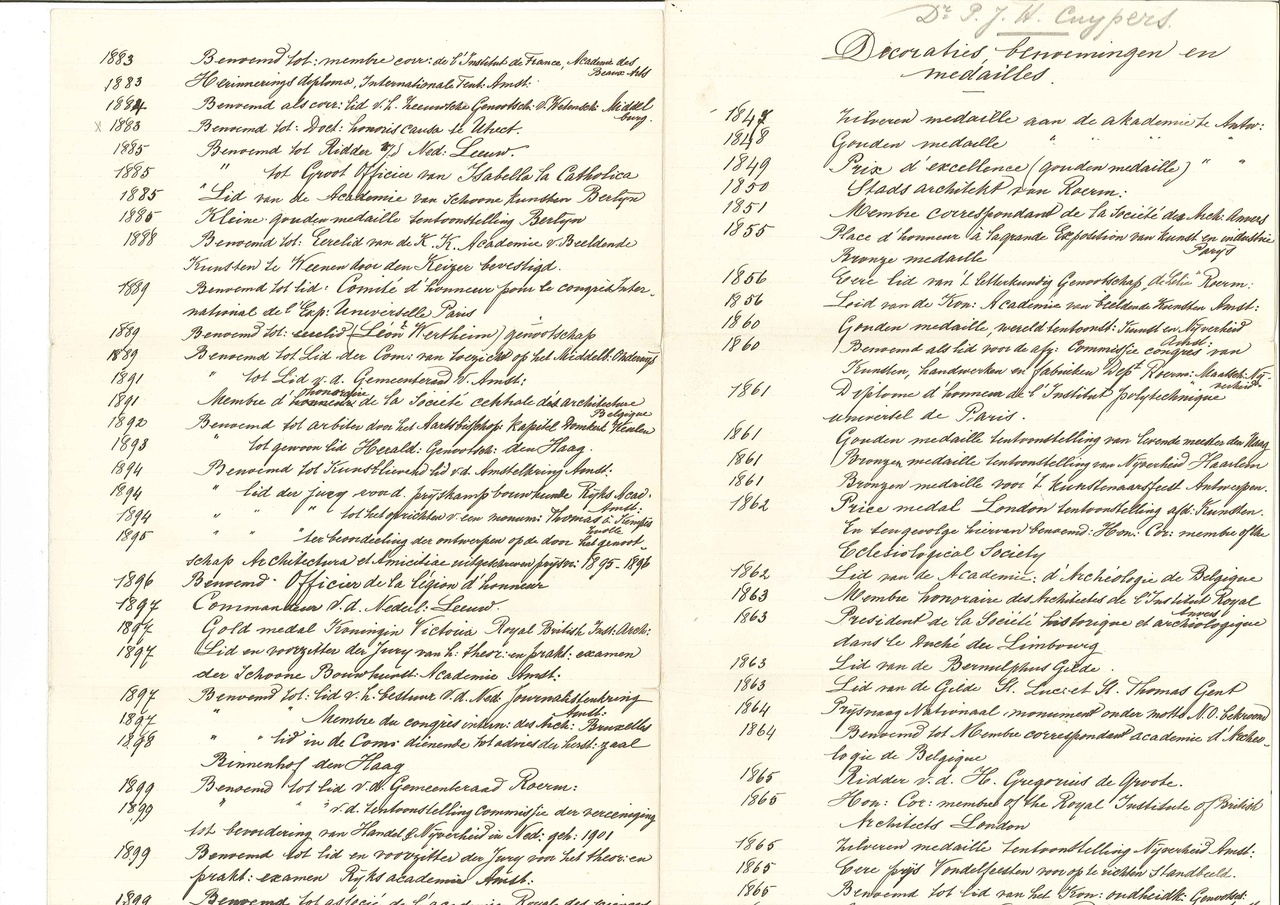 Dr. P. J. H. Cuypers.
Decoraties, benoemingen en
medailles.
1847 Zilveren medaille aan de akademie te Antw:
1848 Gouden medaille " " " "
1849 Prix d'excellence (gouden medaille) " "
1850 Stads architekt van Roerm:
1851 Membre correspondant de la Société des Arch: Anvers
1855 Place d'honneur à la grande Exposition van kunst en industrie
Parijs
Bronze medaille
1856 Eere lid van 't letterkundig Genootschap, Roerm:
1856 Lid van de Kon: Academie van beeldende Kunsten Amst:
1860 Gouden medaille, wereld tentoonst: Kunst en Nijverheid
Amst:
1860 Benoemd als lid voor de afg: Commissie congres van
Kunsten, handwerken en fabrieken Dept Roerm: Maatsch: Nij-
verheid
1861 Diplome d'honneur de l'Institut polytechnique
universel de Paris.
1861 Gouden medaille tentoonstelling van levende meester den Haag
1861 Bronzen medaille tentoonstelling van Nijverheid Haarlem
1861 Bronzen medaille voor 't Kunstenaarsfeest Antwerpen.
1862 Price medal London tentoonstelling afd: Kunsten.
En tengevolge hiervan benoemd: Hon: Cor: member of the
Eclesiological Society
1862 Lid van de Academie: d'Archéologie de Belgique
1863 Membre honoraire des Architectes de l'Institut Royal
Anvers
1863 President de la Société historique et archéologique
dans le Duché de Limbourg
1863 Lid van de Bernulphus Gilde.
1863 Lid van de Gilde St. Luc: et St. Thomas Gent
1864 Prijsvraag Nationaal monument onder motto N.O. bekroond
1864 Benoemd tot Membre correspondant academie d'Archeo-
logie de Belgique
1865 Ridder v.d. H. Gregorius de Groote.
1865 Hon: Cor: member of the Royal Institute of British
Architects London
1865 Zilveren medaille tentoonstelling Nijverheid Amst:
1865 Eere prijs Vondelfeesten voor op te richten Standbeeld.
1865 Benoemd tot lid van het Kon: oudheidk: Genootsch:
1883 Benoemd tot: membre corr: de l'Institut de France, Academie des
Beaux-Arts
1883 Herinnerings diploma, Internationale Tent: Amst:
1884 Benoemd als corr: lid v.h. Zeeuwsche Genootsch: v. Wetensch: Middel
burg.
x 1883 Benoemd tot: Doct: honoris causa te Utrecht.
1885 Benoemd tot Ridder v/d Ned: Leeuw.
1885 " tot Groot Officier van Isabella la Catholica
1885 " Lid van de Academie van Schoone Kunsten Berlijn
1886 Kleine gouden medaille tentoonstelling Berlijn
1888 Benoemd tot: Eerelid van de K. K. Academie v. Beeldende
Kunsten te Weenen door den Keizer bevestigd.
1889 Benoemd tot lid: Comité d'honneur pour le congrès Inter-
national de l'Exp: Universelle Paris
1889 Benoemd tot: eerelid (Léon Wertheim) genootschap
1889 Benoemd tot Lid der Com: van toezicht op het Middelb: Onderwijs
1891 " tot Lid v.d. Gemeenteraad v. Amst:
1891 Membre d'honneur honoraire de la Société centrale des architecture
Belgique
1892 Benoemd tot arbiter door het Aartsbisschop: Kapittel
1893 " tot gewoon lid Herald: Genootsch: den Haag.
1894 Benoemd tot Kunstlievend lid v.d. Amstelkring Amst:
1894 " lid der jury v. d. prijskamp bouwkunde Rijks Acad.
Amst:
1894 " " " tot het oprichten v. een monum: Thomas à Kempis
Zwolle
1895 " " " ter beoordeeling der ontwerpen op de door het genoot
schap Architectura et Amicitiae uitgeschreven prijsvr: 1895-1896
1896 Benoemd: Officier de la légion d'honneur
1897 Commandeur v.d. Nederl: Leeuw.
1897 Gold medal Koningin Victoria Royal British Inst: Arch:
1897 Lid en voorzitter der Jury van h: theor: en prakt: examen
der Schoone Bouwkunst Academie Amst:
1897 Benoemd tot: lid v.h. bestuur v.d. Ned. Journalistenkring
Amst:
1897 " " Membre du congres intern: des Arch: Bruxelles
1898 " " lid in de Com: dienende tot advies der herst: zaal
Binnenhof den Haag
1899 Benoemd tot lid v.d. Gemeenteraad Roerm:
1899 " " " v.d. tentoonstelling Commissie der vereeniging
tot bevordering van Handel & Nijverheid in Ned: geh: 1901
1899 Benoemd tot lid en voorzitter der Jury voor het theor: en
prakt: examen Rijksacademie Amst:
1899 Benoemd tot associé de l'academie Royale des sciences